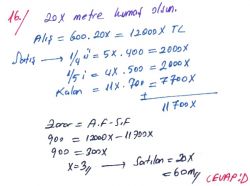 16./ 20X metre kumaş olsun.
Alış = 600.20X = 12000X TL
Satış → 1/4 ü = 5X.400 = 2000X
1/5 i = 4X.500 = 2000X
Kalan = 11X.700 = 7700X
+
11700X
Zarar = A.F - S.F
900 = 12000X - 11700X
900 = 300X
X = 3 // → Satılan = 20X
= 60m //
CEVAP: D